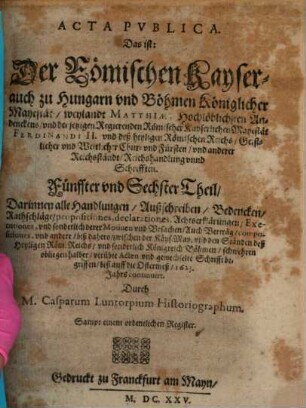 ACTA PVBLICA.
Das ist:
Der Römischen Kayser-
auch zu Hungarn vnd Böhmen Königlicher
Mayestät / weylandt MATTHIÆ, Hochlöblichsten An-
denckens / vnd des jetzigen Regierenden Römischer Kayserlichen Mayestät
FERDINANDI II. vnd deß heyligen Römischen Reichs / Geist-
licher vnd Weltlicher Chur- vnd Fürsten / vnd anderer
Reichsständt / Reichshandlung vnnd
Schrifften.
Fünffter vnd Sechster Theil /
Darinnen alle Handlungen / Außschreiben / Bedencken /
Rathschläge / propositiones, declarationes, Achtserklärungen, Exe-
cutiones, vnd sonderlich derer Motiven vnd Vrsachen / Auch Verträg / compo-
sitiones, vnd anders / deß haben zwischen der Käys. May. vnd den Ständen deß
Heyligen Röm. Reichs / vnd sonderlich Königreich Böhmen / schweben
obligen halber / verübte Action vnd gewechselte Schrifft be-
griffen / biß auff die Ostermeß / 1625.
Jahrs continuirt.
Durch
M. Casparum Luntorpium Historiographum.
Sampt einem ordenlichen Register.
Gedruckt zu Franckfurt am Mayn /
M. DC. XXV.